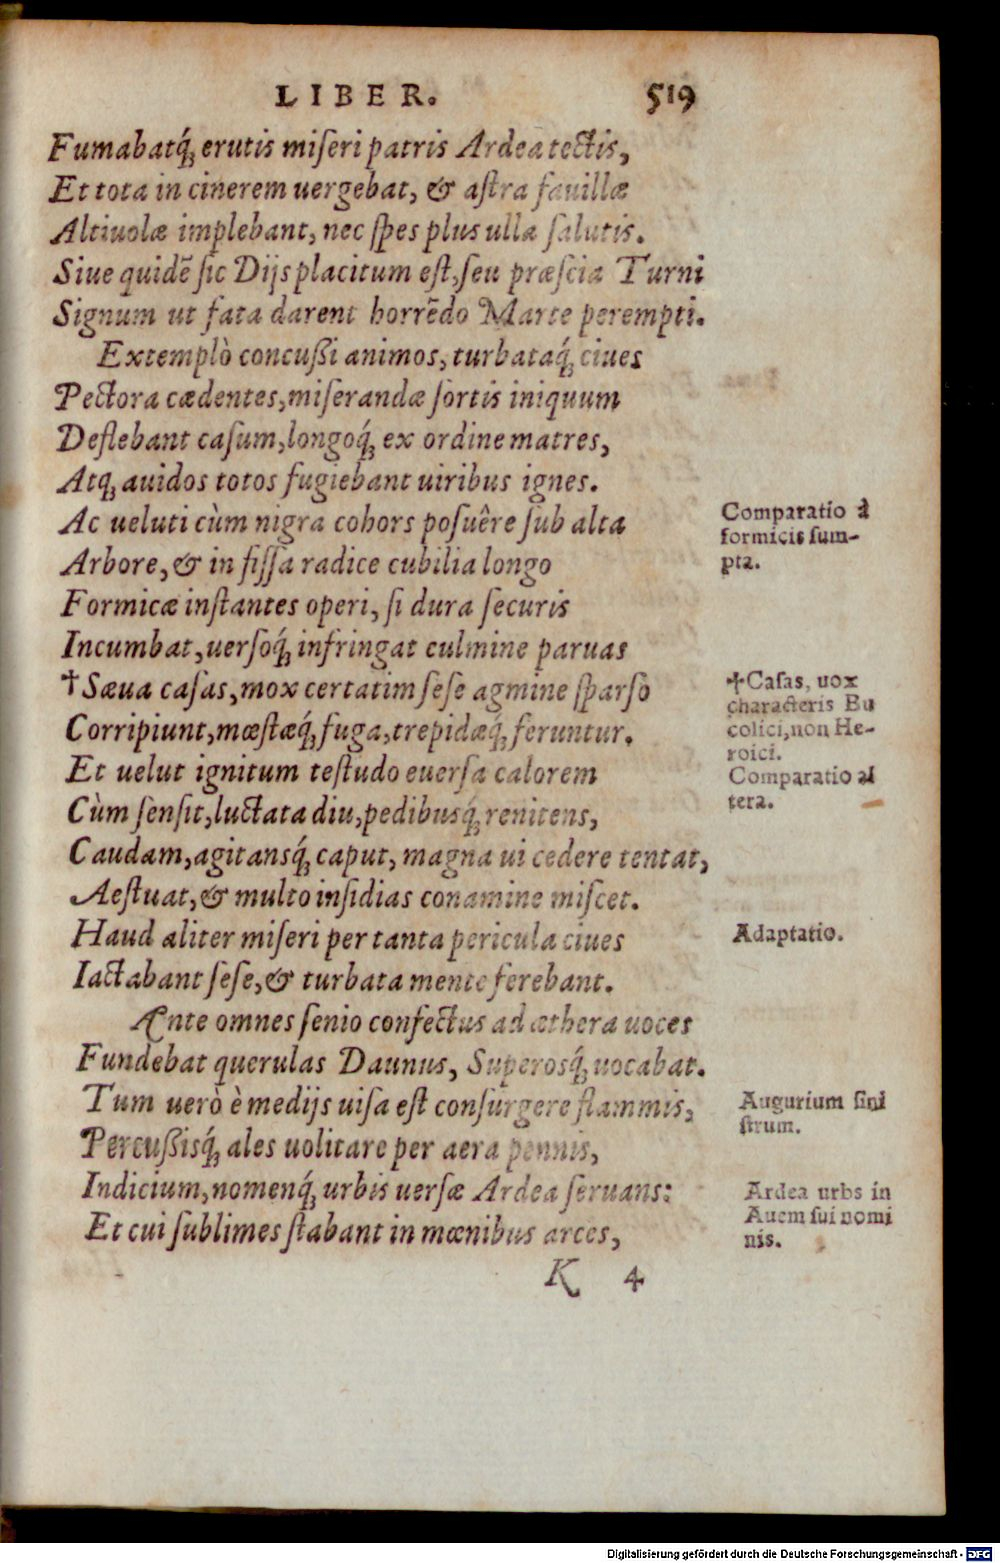 LIBER. 519
Fumabatq́ꝫ erutis miſeri patris Ardea tectis,
Et tota in cinerem uergebat, & aſtra fauillæ
Altiuolæ implebant, nec ſpes plus ulla ſalutis.
Siue quidẽ ſic Dijs placitum eſt, ſeu præſcia Turni
Signum ut fata darent horrẽdo Marte perempti.
Extemplò concußi animos, turbataq́ꝫ ciues
Pectora cædentes, miſerandæ ſortis iniquum
Deflebant caſum, longoq́ꝫ ex ordine matres,
Atqꝫ auidos totos fugiebant uiribus ignes.
Ac ueluti cùm nigra cohors poſuêre ſub alta
Arbore, & in fiſſa radice cubilia longo
Formicæ inſtantes operi, ſi dura ſecuris
Incumbat, uerſoq́ꝫ infringat culmine paruas
†Sæua caſas, mox certatim ſeſe agmine ſparſo
Corripiunt, mœſtæq́ꝫ fuga, trepidæq́ꝫ feruntur.
Et uelut ignitum teſtudo euerſa calorem
Cùm ſenſit, luctata diu, pedibusq́ꝫ renitens,
Caudam, agitansq́ꝫ caput, magna ui cedere tentat,
Aeſtuat, & multo inſidias conamine miſcet.
Haud aliter miſeri per tanta pericula ciues
Iactabant ſeſe, & turbata mente ferebant.
Ante omnes ſenio confectus ad æthera uoces
Fundebat querulas Daunus, Superosq́ꝫ uocabat.
Tum uerò è medijs uiſa eſt conſurgere flammis,
Percußisq́ꝫ ales uolitare per aera pennis,
Indicium, nomenq́ꝫ urbis uerſæ Ardea ſeruans:
Et cui ſublimes ſtabant in mœnibus arces,
K 4
Comparatio à
formicis ſum-
pta.
†Caſas, uox
characteris Bu
colici, non He-
roici.
Comparatio al
tera.
Adaptatio.
Augurium ſini
ſtrum.
Ardea urbs in
Auem ſui nomi
nis.
Digitalisierung gefördert durch die Deutsche Forschungsgemeinschaft - DFG